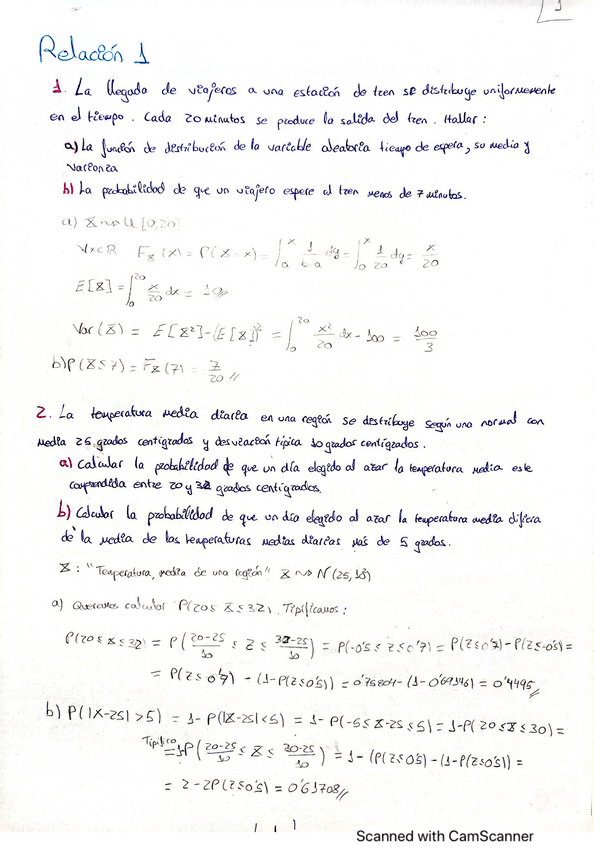 1
Relación 1
1. La llegada de viajeros a una estación de tren se distribuye uniformemente
en el tiempo. Cada 20 minutos se produce la salida del tren. Hallar:
a) La función de distribución de la variable aleatoria tiempo de espera, su media y
varianza
b) La probabilidad de que un viajero espere al tren menos de 7 minutos.
a) X ~> U[0,20]
∀x∈R F_X(x) = P(X=x) = ∫_a^x 1/(b-a) dy = ∫_0^x 1/20 dy = x/20
E[X] = ∫_0^20 x/20 dx = 10//
Var(X) = E[X²]-(E[X])² = ∫_0^20 x²/20 dx - 100 = 100/3
b) P(X≤7) = F_X(7) = 7/20 //
2. La temperatura media diaria en una región se distribuye según una normal con
media 25 grados centígrados y desviación típica 10 grados centígrados.
a) Calcular la probabilidad de que un día elegido al azar la temperatura media este
comprendida entre 20 y 32 grados centígrados.
b) Calcular la probabilidad de que un día elegido al azar la temperatura media difiera
de la media de las temperaturas medias diarias más de 5 grados.
X: "Temperatura, media de una región" X ~> N(25,10)
a) Queremos calcular P(20≤X≤32). Tipificamos:
P(20≤X≤32) = P((20-25)/10 ≤ Z ≤ (32-25)/10) = P(-0'5≤Z≤0'7) = P(Z≤0'7)-P(Z≤-0'5)=
= P(Z≤0'7) - (1-P(Z≤0'5)) = 0'75804-(1-0'69146) = 0'4495//
b) P(|X-25|>5) = 1-P(|X-25|<5) = 1-P(-5≤X-25≤5) = 1-P(20≤X≤30) =
Tipifico = 1-P((20-25)/10 ≤ X ≤ (30-25)/10) = 1-(P(Z≤0'5)-(1-P(Z≤0'5)) =
= 2-2P(Z≤0'5) = 0'61708//
Scanned with CamScanner